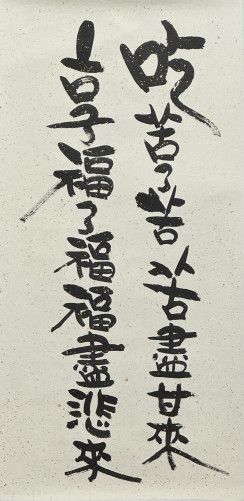 吃苦了苦苦盡甘來
享福了福福盡悲來